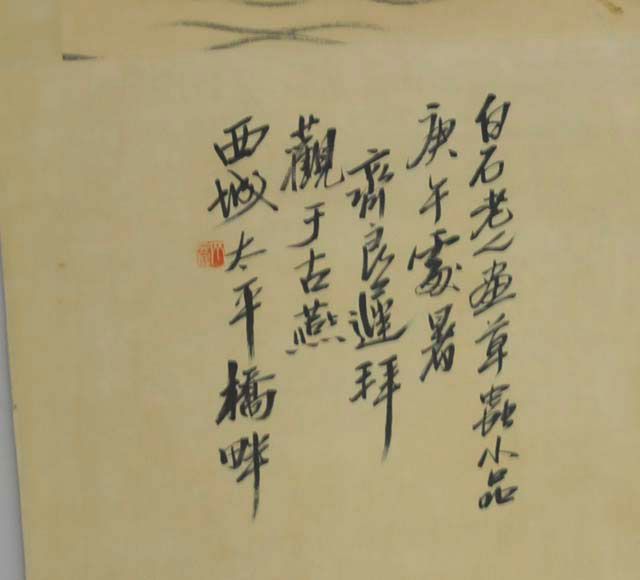 白石老人画草蟲小品
庚午處暑
齊良遲拜
觀于古燕
西城太平橋畔